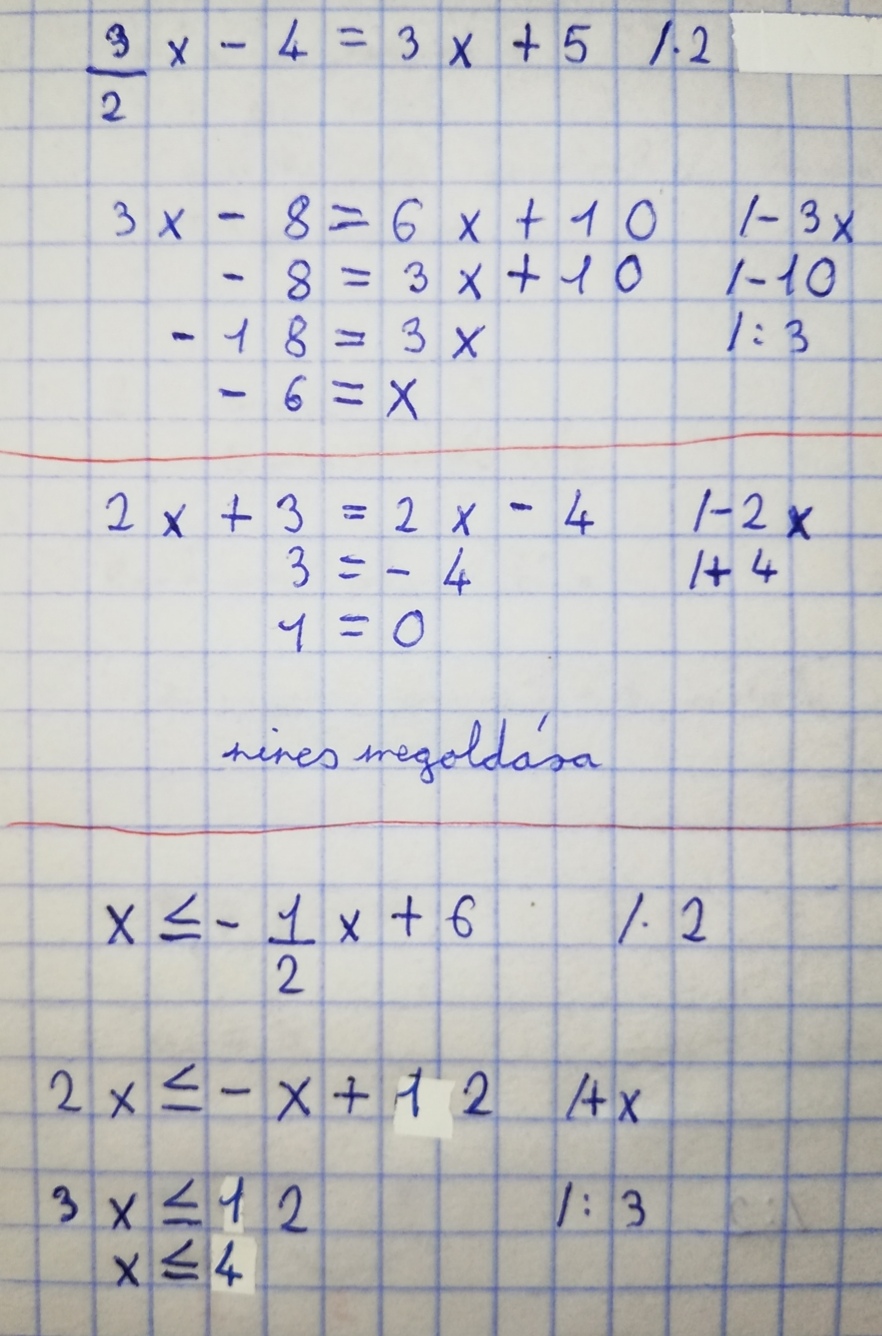 3/2 x - 4 = 3x + 5 /·2
3x - 8 = 6x + 10 /-3x
- 8 = 3x + 10 /-10
- 18 = 3x /:3
- 6 = x
2x + 3 = 2x - 4 /-2x
3 = - 4 /+4
1 = 0
nincs megoldása
x ≤ - 1/2 x + 6 /·2
2x ≤ - x + 12 /+x
3x ≤ 12 /:3
x ≤ 4